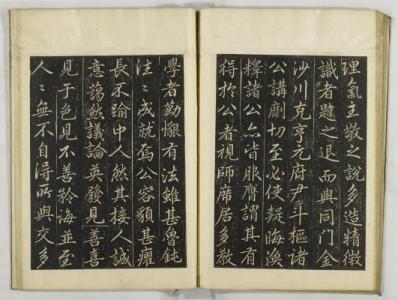 理氣主敬之說多造精微
識者韙之退而與同門金
沙川克亨元府尹斗樞諸
公講劘切至必使疑晦渙
釋諸公亦皆服膺謂其有
得於公者視師席居多教
學者勤懇有法雖甚魯鈍
往〻成就焉公容額甚癯
長不踰中人然其接人誠
意藹然議論英發見善喜
見于色見不善矜誨並至
人〻無不自得所與交多